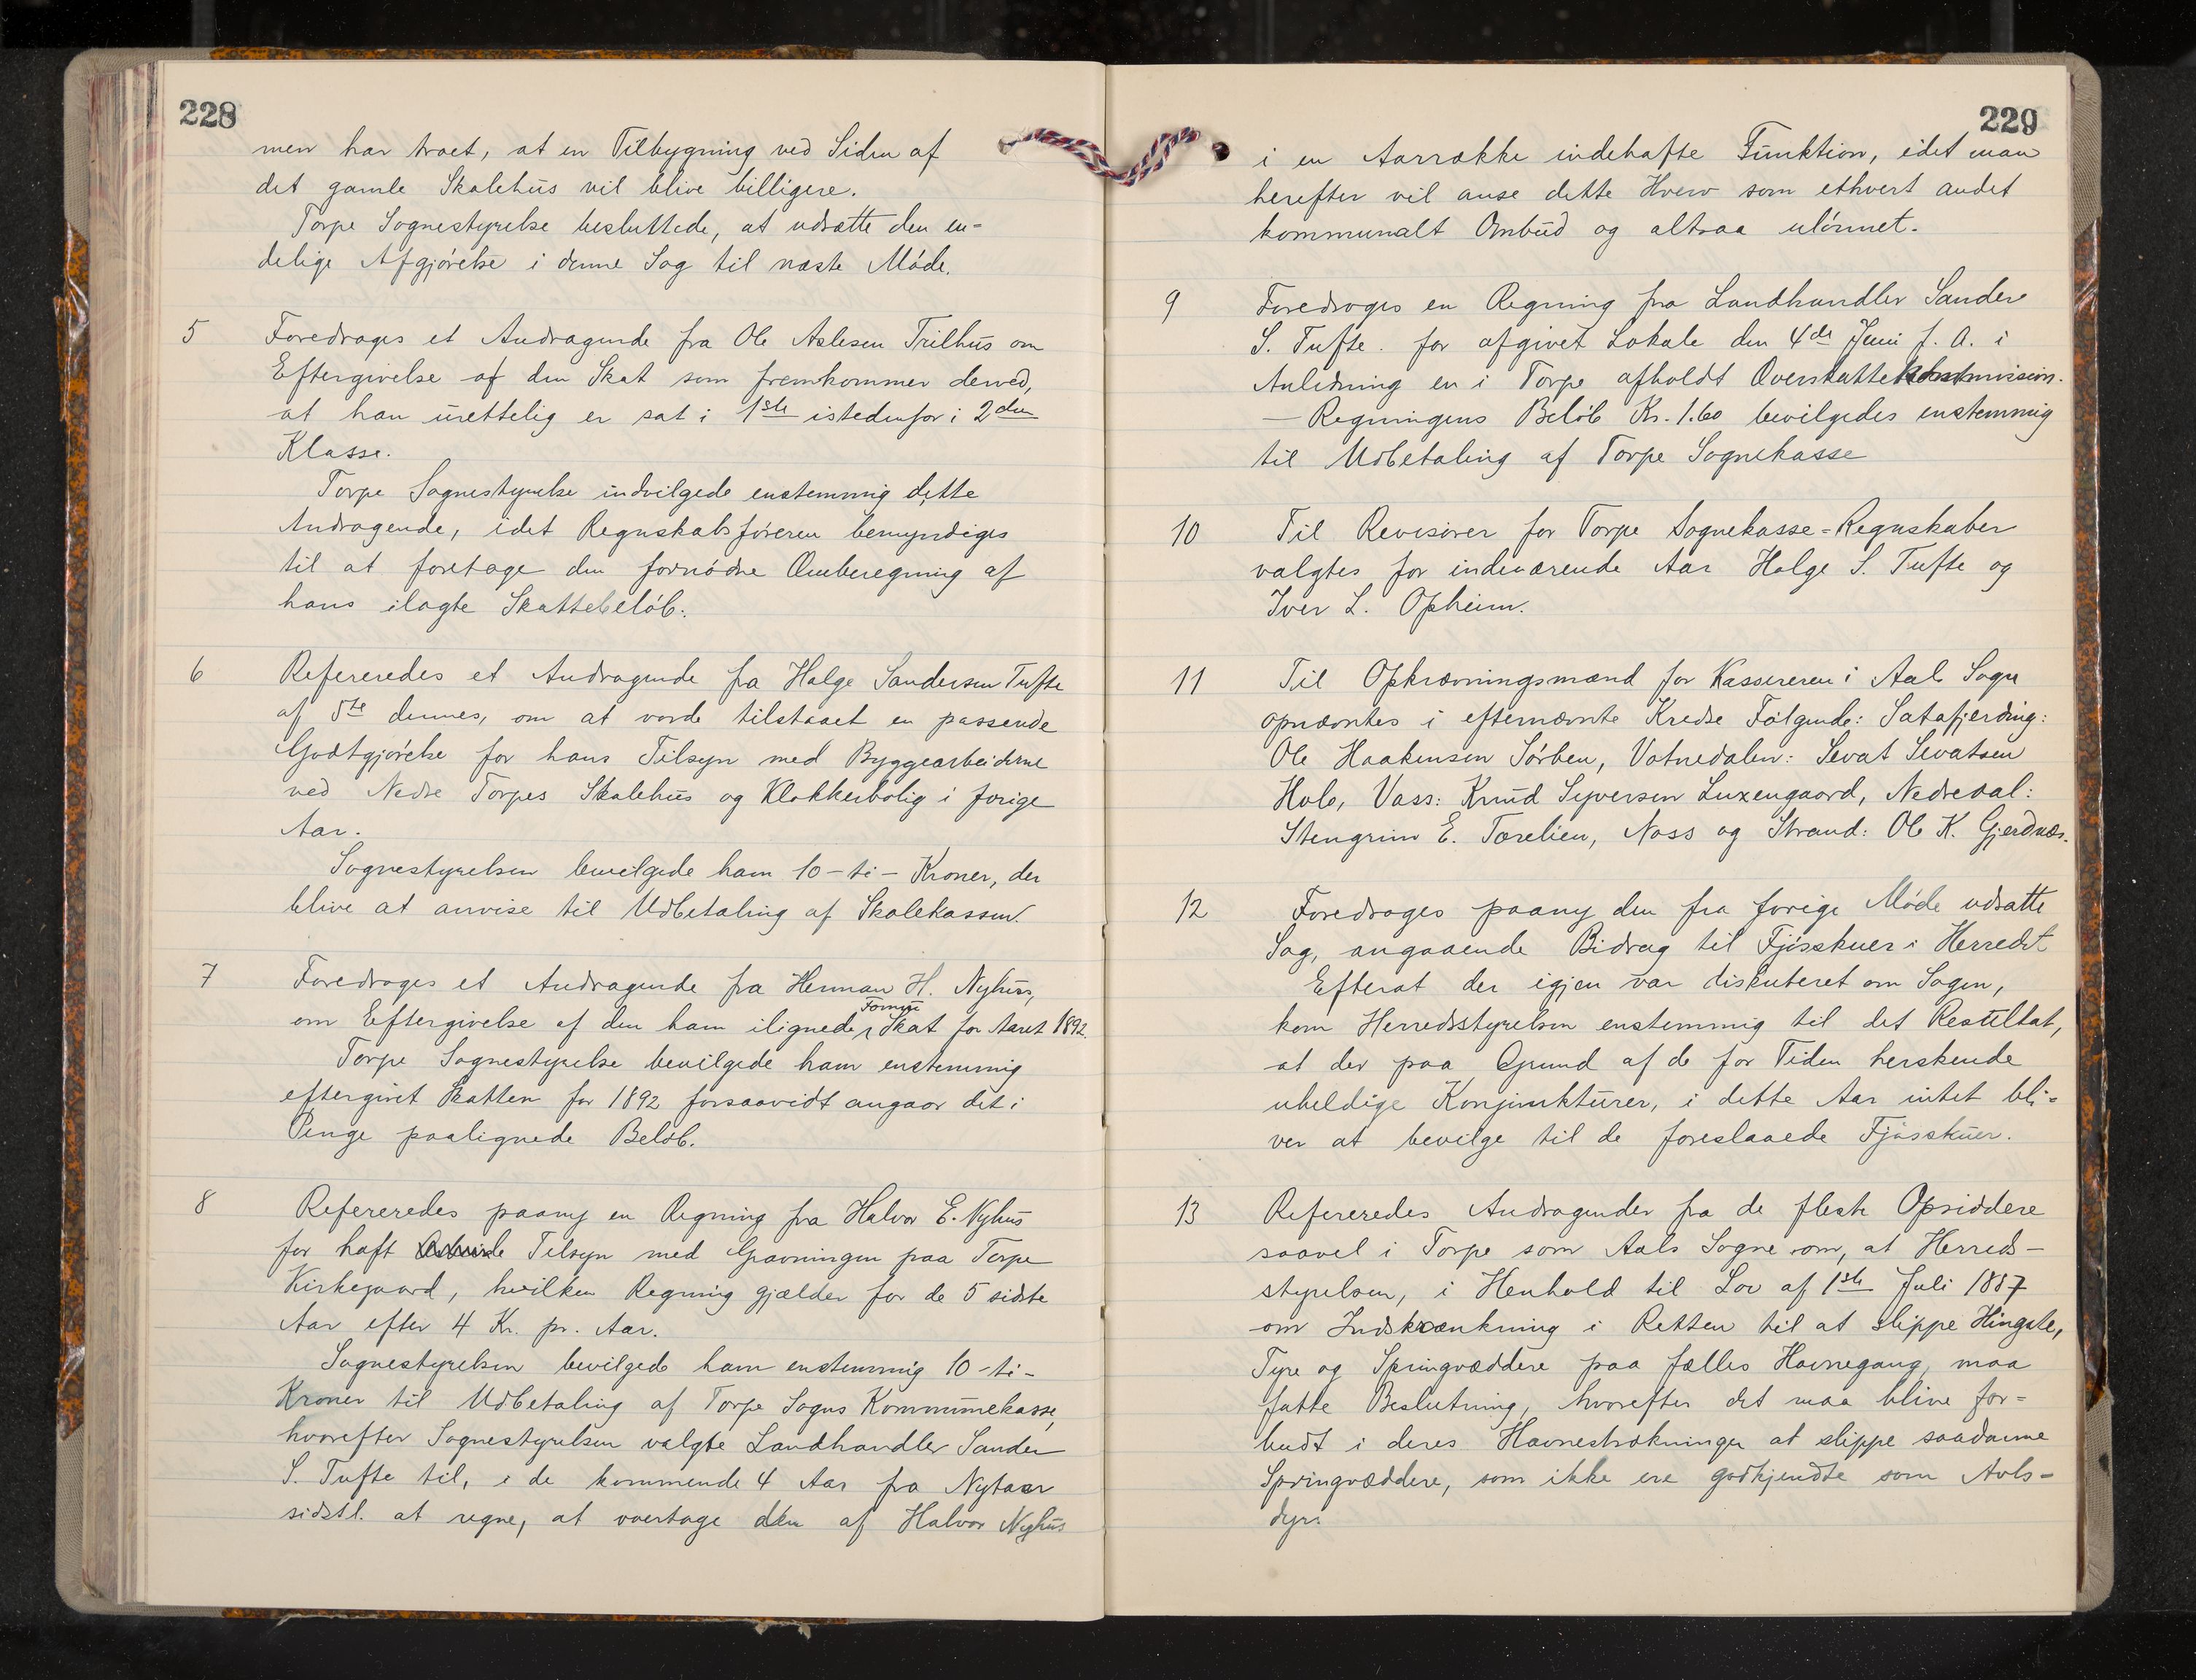 228
men har troet, at en Tilbygning ved Siden af
det gamle Skolehus vil blive billigere.
Torpe Sognestyrelse besluttede, at udsætte den en-
delige Afgjørelse i denne Sag til næste Møde.
5 Foredrages et Andragende fra Ole Aslesen Trilhus om
Eftergivelse af den Skat som fremkommer derved,
at han urettelig er sat i 1ste istedenfor i 2den
Klasse.
Torpe Sognestyrelse indvilgede enstemmig dette
Andragende, idet Regnskabsføreren bemyndiges
til at foretage den fornødne Omberegning af
hans ilagte Skattebeløb.
6 Refereredes et Andragende fra Halge Sandersen Tufte
af 5te dennes, om at vorde tilstaaet en passende
Godtgjørelse for hans Tilsyn med Byggearbeiderne
ved Nedre Torpes Skolehus og Klokkerbolig i forige
Aar.
Sognestyrelsen bevilgede ham 10 - ti - Kroner, der
blive at anvise til Udbetaling af Skolekassen.
7 Foredroges et Andragende fra Herman H. Nyhus,
om Eftergivelse af den ham ilignede Formue Skat for Aaret 1892.
Torpe Sognestyrelse bevilgede ham enstemmig
eftergivet Skatten for 1892 forsaavidt angaar det i
Penge paalignede Beløb.
8 Refereredes paany en Regning fra Halvor E. Nyhus
for haft Tilsyn med Gravningen paa Torpe
Kirkegaard, hvilken Regning gjælder for de 5 sidste
Aar efter 4 Kr. pr. Aar.
Sognestyrelsen bevilgede ham enstemmig 10 - ti -
Kroner til Udbetaling af Torpe Sogns Kommunekasse,
hvorefter Sognestyrelsen valgte Landhandler Sander
S. Tufte til, i de kommende 4 Aar fra Nytaar
sidstl. at regne, at overtage den af Halvor Nyhus
229
i en Aarrække indehafte Funktion, idet man
herefter vil anse dette Hverv som ethvert andet
kommunalt Ombud og altsaa ulønnet.
9 Foredroges en Regning fra Landhandler Sander
S. Tufte for afgivet Lokale den 4de Juni f. A. i
Anledning en i Torpe afholdt Overskattekommission.
— Regningens Beløb Kr. 1.60 bevilgedes enstemmig
til Udbetaling af Torpe Sognekasse
10 Til Revisorer for Torpe Sognekasse-Regnskaber
valgtes for indeværende Aar Halge S. Tufte og
Iver L. Opheim.
11 Til Opkrævningsmænd for Kassereren i Aal Sogn
opnævntes i efternævnte Kredse Følgende: Satafjerding:
Ole Haakensen Sørben, Votnedalen: Sevat Sevatsen
Holo, Vass: Knud Syversen Luxengaard, Nedreaal:
Stengrim E. Torelien, Noss og Strand: Ole K. Gjerdnæs.
12 Foredroges paany den fra forige Møde udsatte
Sag, angaaende Bidrag til Fjøsskuer i Herredet
Efterat der igjen var diskuteret om Sagen,
kom Herredsstyrelsen enstemmig til det Resultat,
at der paa Grund af de for Tiden herskende
uheldige Konjunkturer, i dette Aar intet bli-
ver at bevilge til de foreslaaede Fjøsskuer.
13 Refereredes Andragender fra de fleste Opsiddere
saavel i Torpe som Aals Sogne om, at Herreds-
styrelsen, i Henhold til Lov af 1ste Juli 1887
om Indskrænkning i Retten til at slippe Hingste,
Tyre og Springvæddere paa fælles Havnegang, maa
fatte Beslutning, hvorefter det maa blive for-
budt i deres Havnestrækninger at slippe saadanne
Springvæddere, som ikke ere godkjendte som Avls-
dyr.